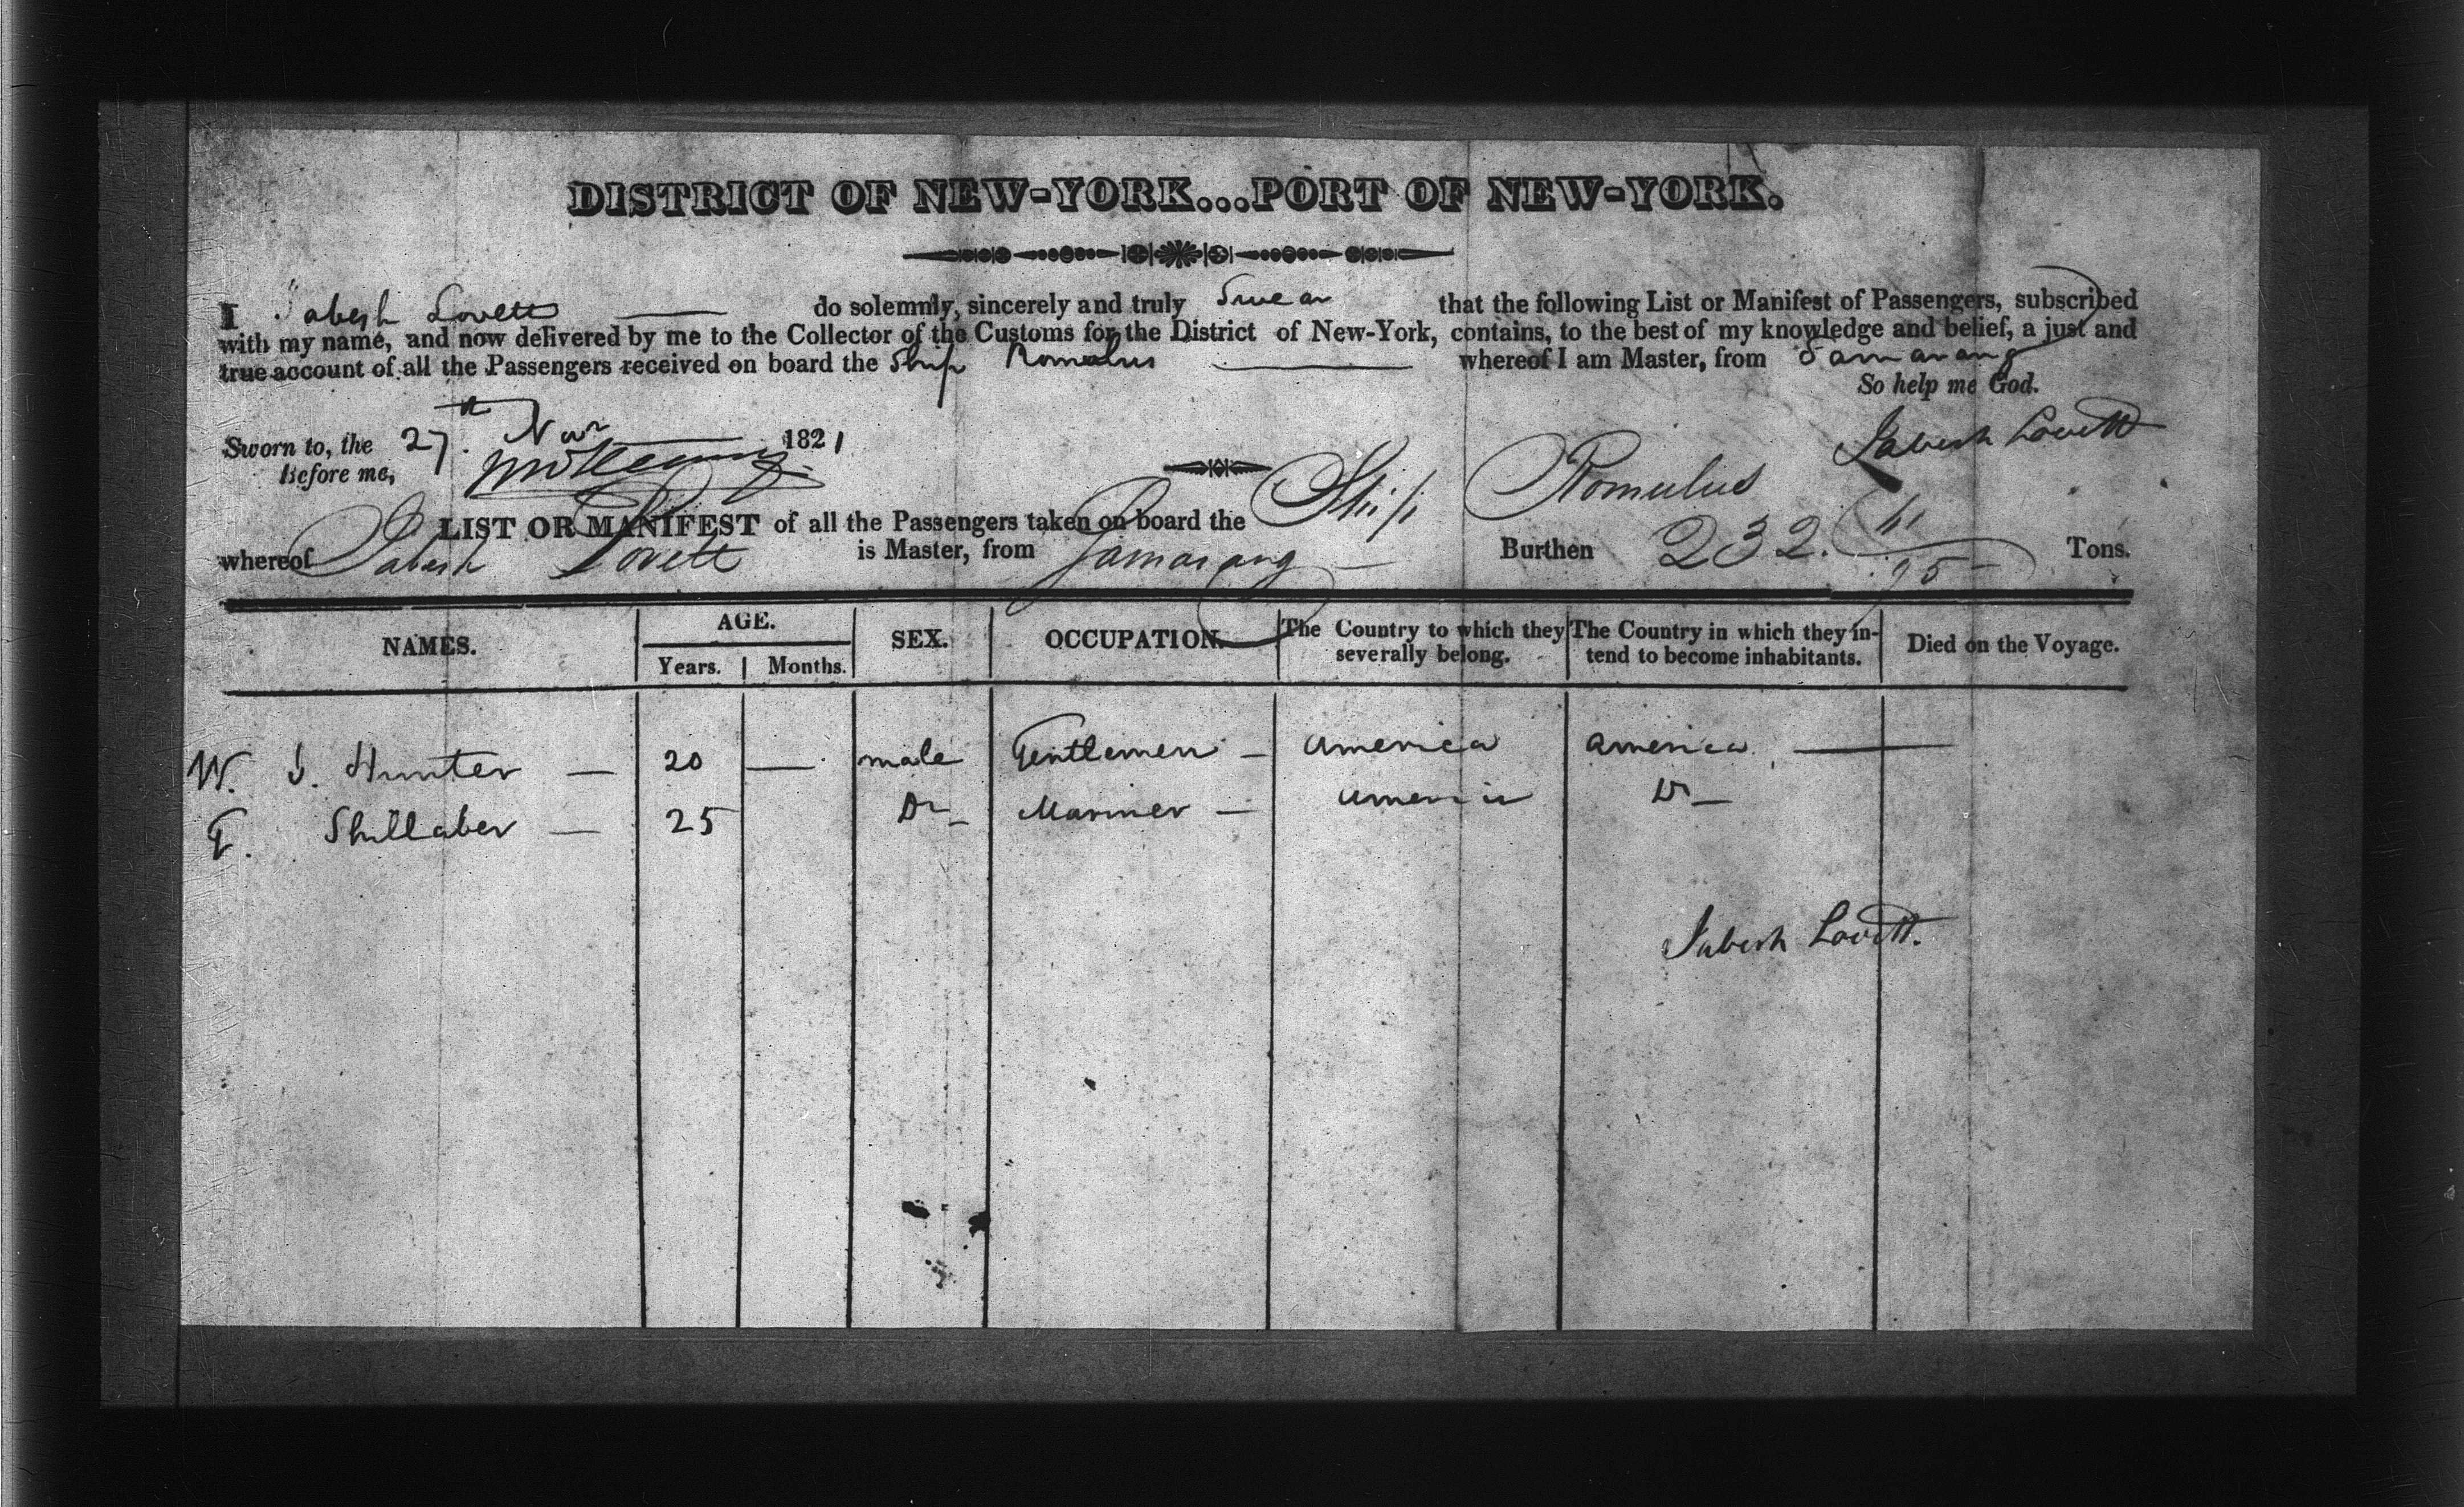 DISTRICT OF NEW-YORK...PORT OF NEW-YORK.
I Jabesh Lovett do solemnly, sincerely and truly Swear that the following List or Manifest of Passengers, subscribed
with my name, and now delivered by me to the Collector of the Customs for the District of New-York, contains, to the best of my knowledge and belief, a just and
true account of all the Passengers received on board the Ship Romulus whereof I am Master, from Samarang
So help me God.
Sworn to, the 27th Nov 1821 Jabesh Lovett
Before me,
LIST OR MANIFEST of all the Passengers taken on board the Ship Romulus
whereof Jabesh Lovett is Master, from Samarang Burthen 232. 61/95 Tons.
NAMES. AGE. Years. Months. SEX. OCCUPATION. The Country to which they severally belong. The Country in which they intend to become inhabitants. Died on the Voyage.
W. J. Hunter — 20 — male Gentlemen — America America —
Shillaber — 25 Do — Mariner — America Do —
Jabesh Lovett.